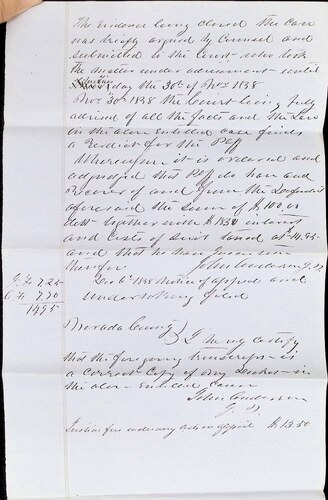 The Evidence being closed the Case
was briefly argued by Counsel and
Submitted to the Court who took
the matter under advisement until
day the 30th of Nov 1858
Nov 30th 1858 the Court being fully
advised of all the facts and the Law
in the above entitled case finds
a Verdict for the Plff
Whereupon it is ordered and
adjudged that Plff do have and
Recover of and from the Defendant
aforesaid the Sum of $100 in
debt together with $ interest
and Costs of Suit taxed at $14.95
and that he have Execution
therefor John Anderson J.P.
J. F. 7.25
C. F. 7.70
14.95
Dec 6th 1858 Notice of appeal and
undertaking filed
Nevada County }
I hereby certify
that the foregoing transcript is
a correct Copy of my Docket in
the above Entitled Cause
John Anderson
J. P.
Justice fees ordinary action appeal $ 13.50